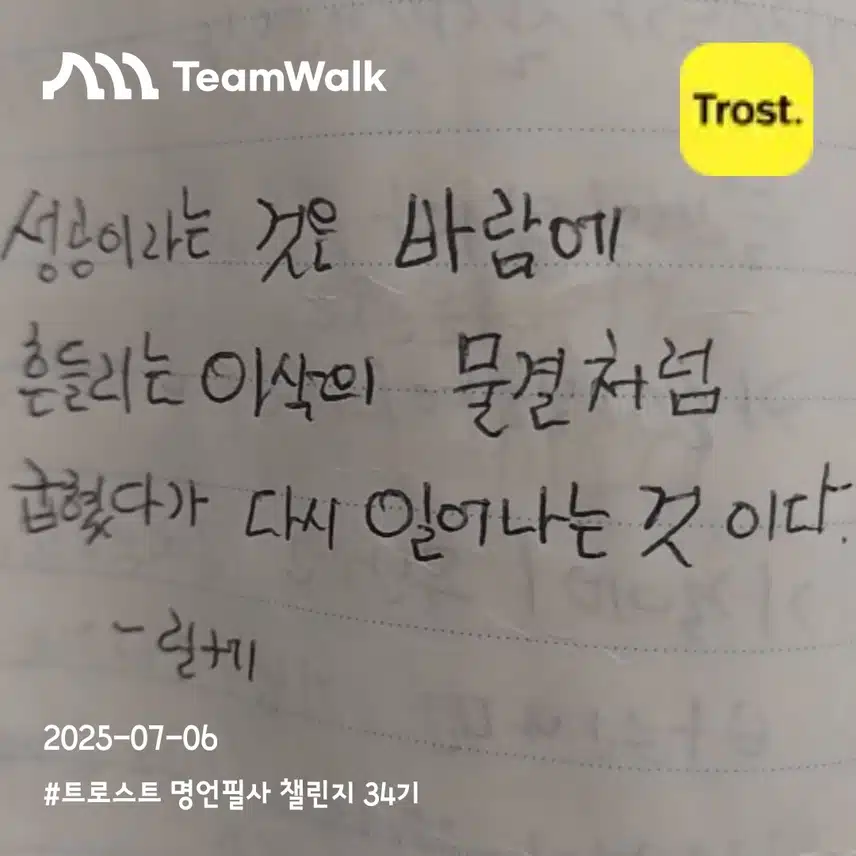 TeamWalk
Trost.
성공이라는 것은 바람에
흔들리는 이삭의 물결처럼
굽혔다가 다시 일어나는 것 이다.
- 릴케
2025-07-06
#트로스트 명언필사 챌린지 34기